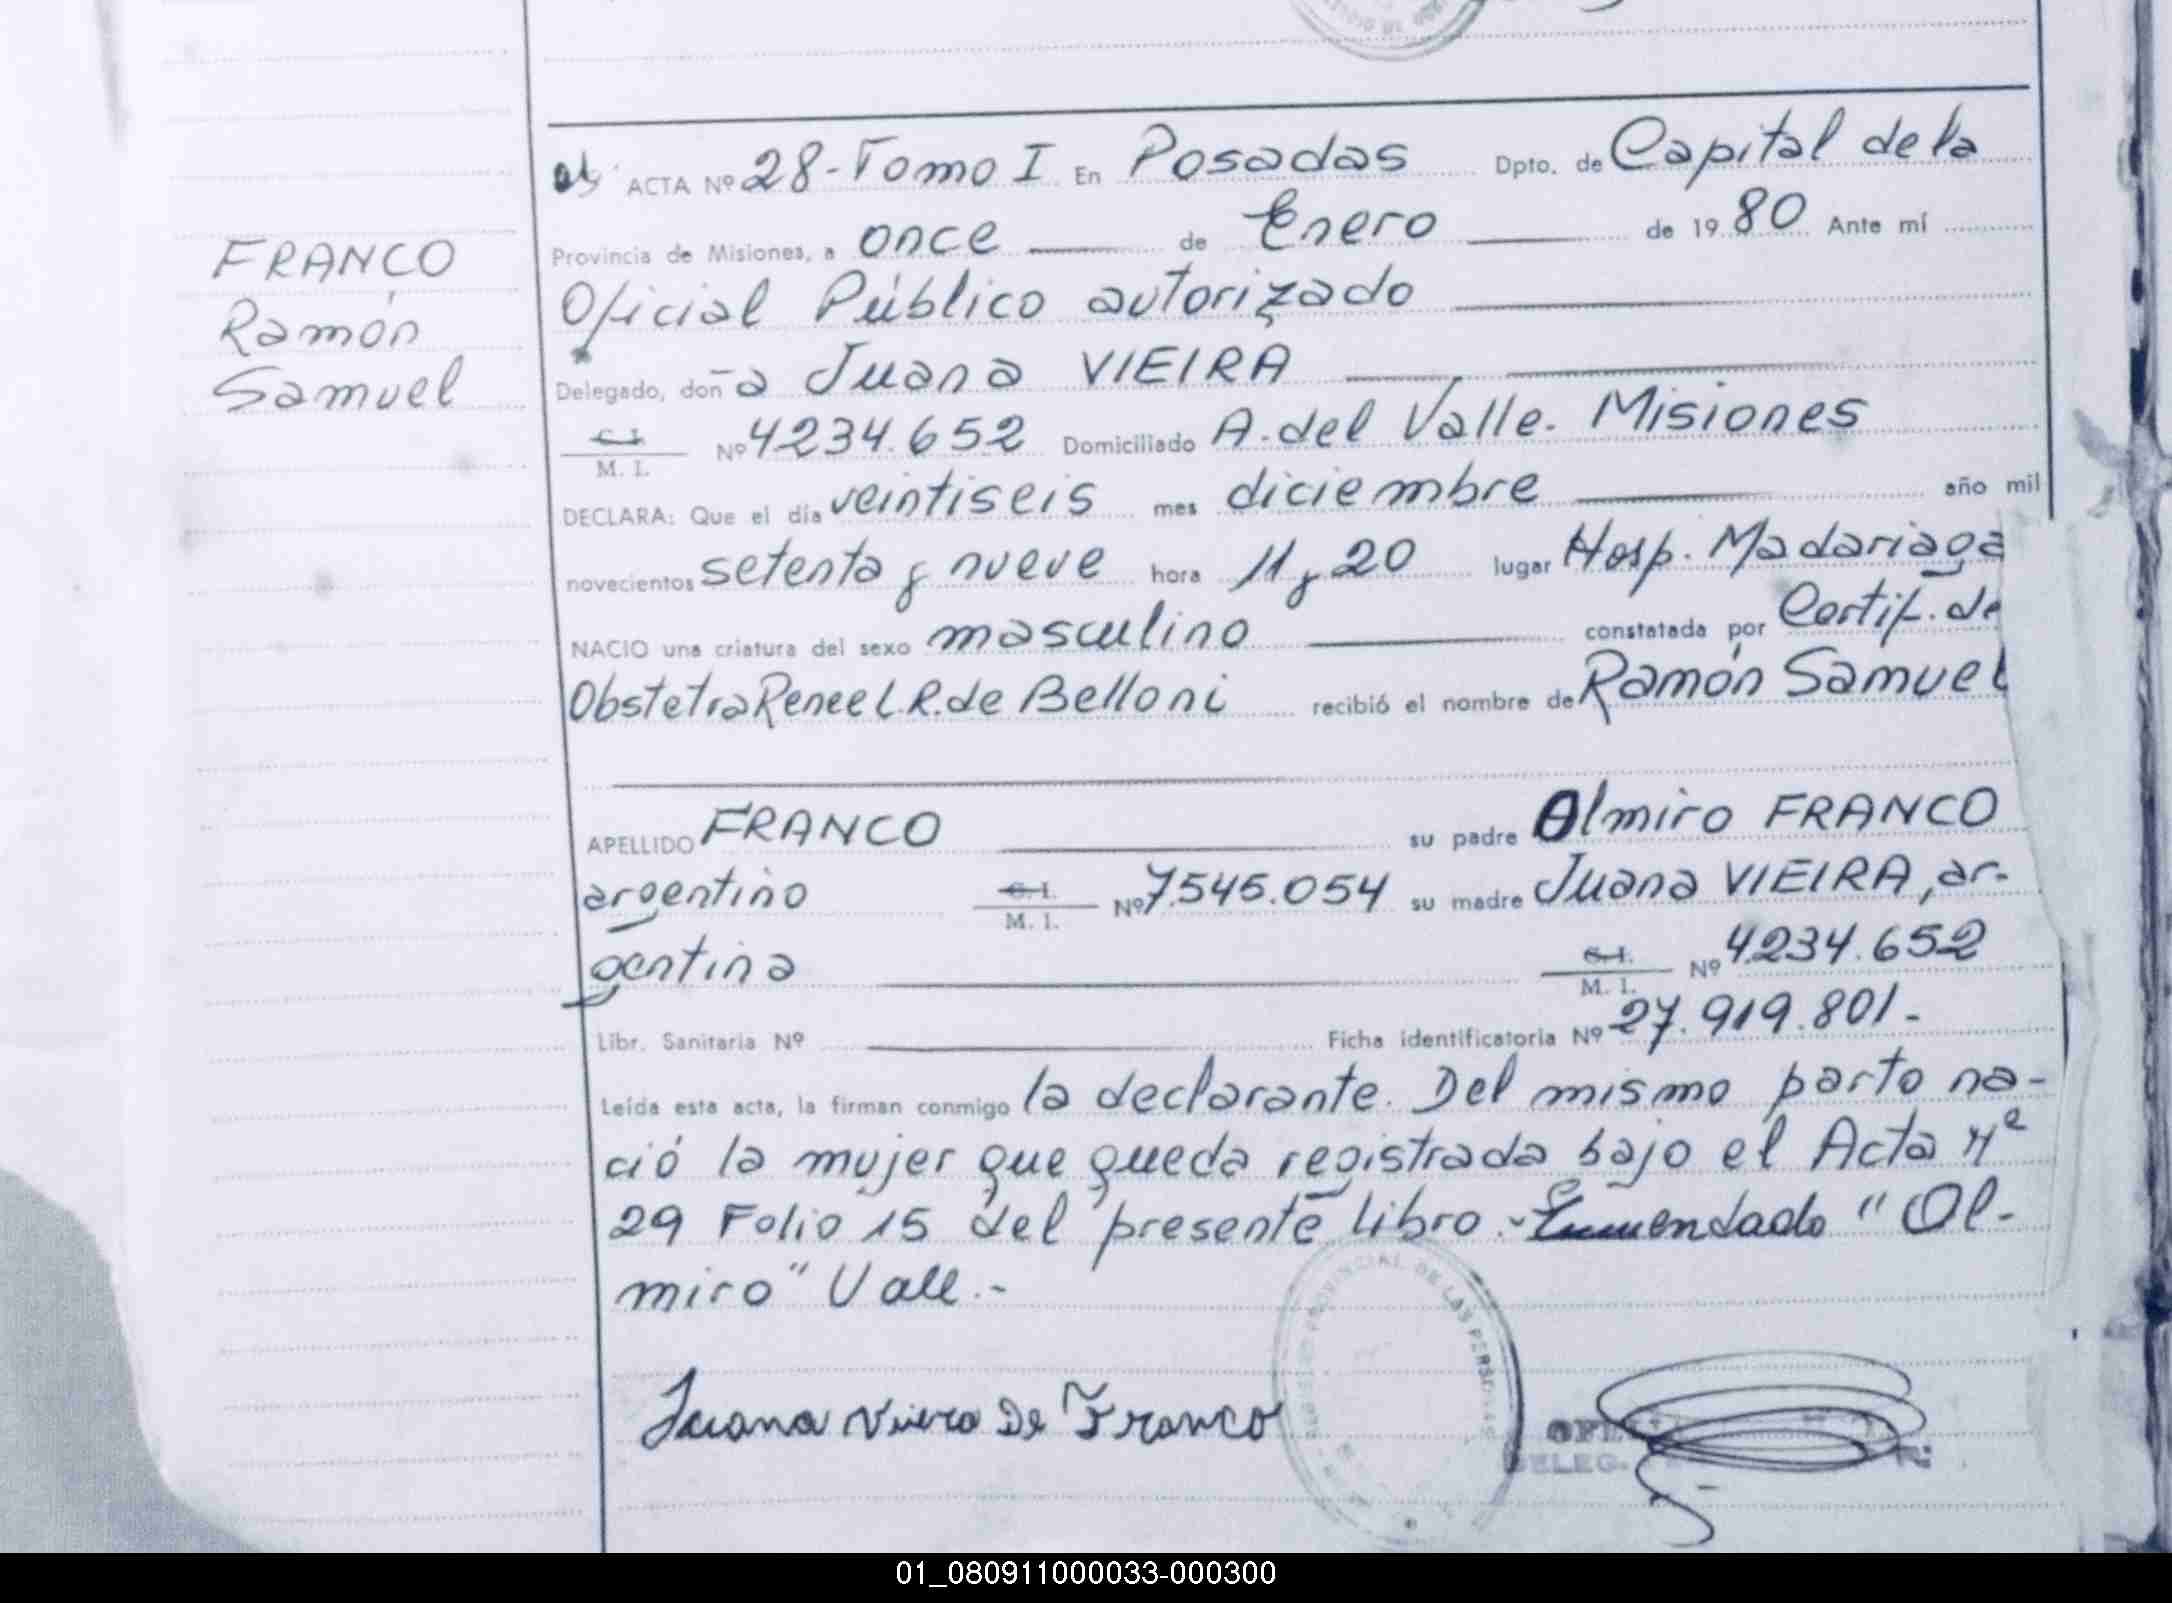 FRANCO
Ramón
Samuel
ACTA Nº 28 - Tomo I En Posadas Dpto. de Capital de la
Provincia de Misiones, a once de Enero de 1980 Ante mí
Oficial Público autorizado
Delegado, doña Juana VIEIRA
C. I. M. I. Nº 4234.652 Domiciliado A. del Valle. Misiones
DECLARA: Que el día veintiseis mes diciembre año mil
novecientos setenta y nueve hora 11 y 20 lugar Hosp. Madariaga
NACIO una criatura del sexo masculino constatada por Certif. de
Obstetra Renee L R. de Belloni recibió el nombre de Ramón Samuel
APELLIDO FRANCO su padre Olmiro FRANCO
argentino C. I. M. I. Nº 7.545.054 su madre Juana VIEIRA, ar-
gentina C. I. M. I. Nº 4.234.652
Libr. Sanitaria Nº Ficha identificatoria Nº 27.919.801.-
Leída esta acta, la firman conmigo la declarante. Del mismo parto na-
ció la mujer que queda registrada bajo el Acta Nº
29 Folio 15 del presente libro.- Enmendado "Ol-
miro" Vale.-
PROVINCIAL DE LAS PERSONAS
Juana Viera De Franco
DELEG.
01_080911000033-000300